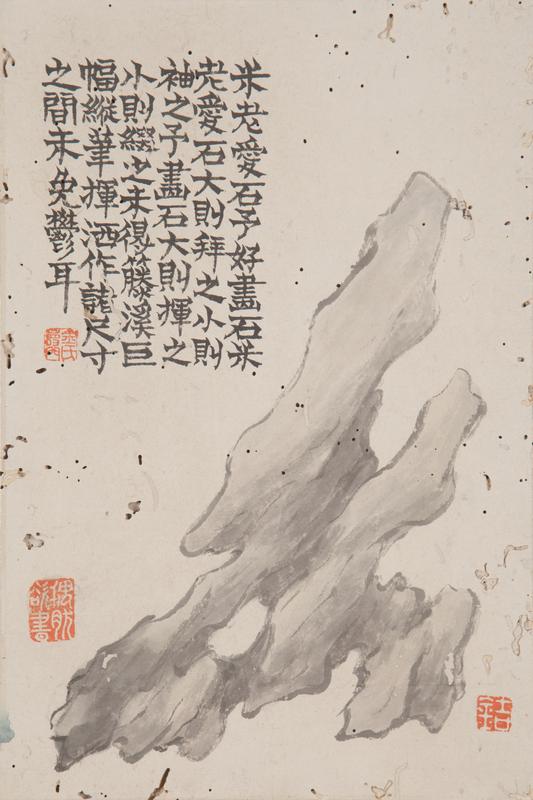 米老愛石予好畫石米
老愛石大則拜之小則
袖之予畫石大則揮之
小則綴之未得籐溪巨
幅縱筆揮洒作尺寸
之間未免鬱耳
金氏壽門
偶然欲書